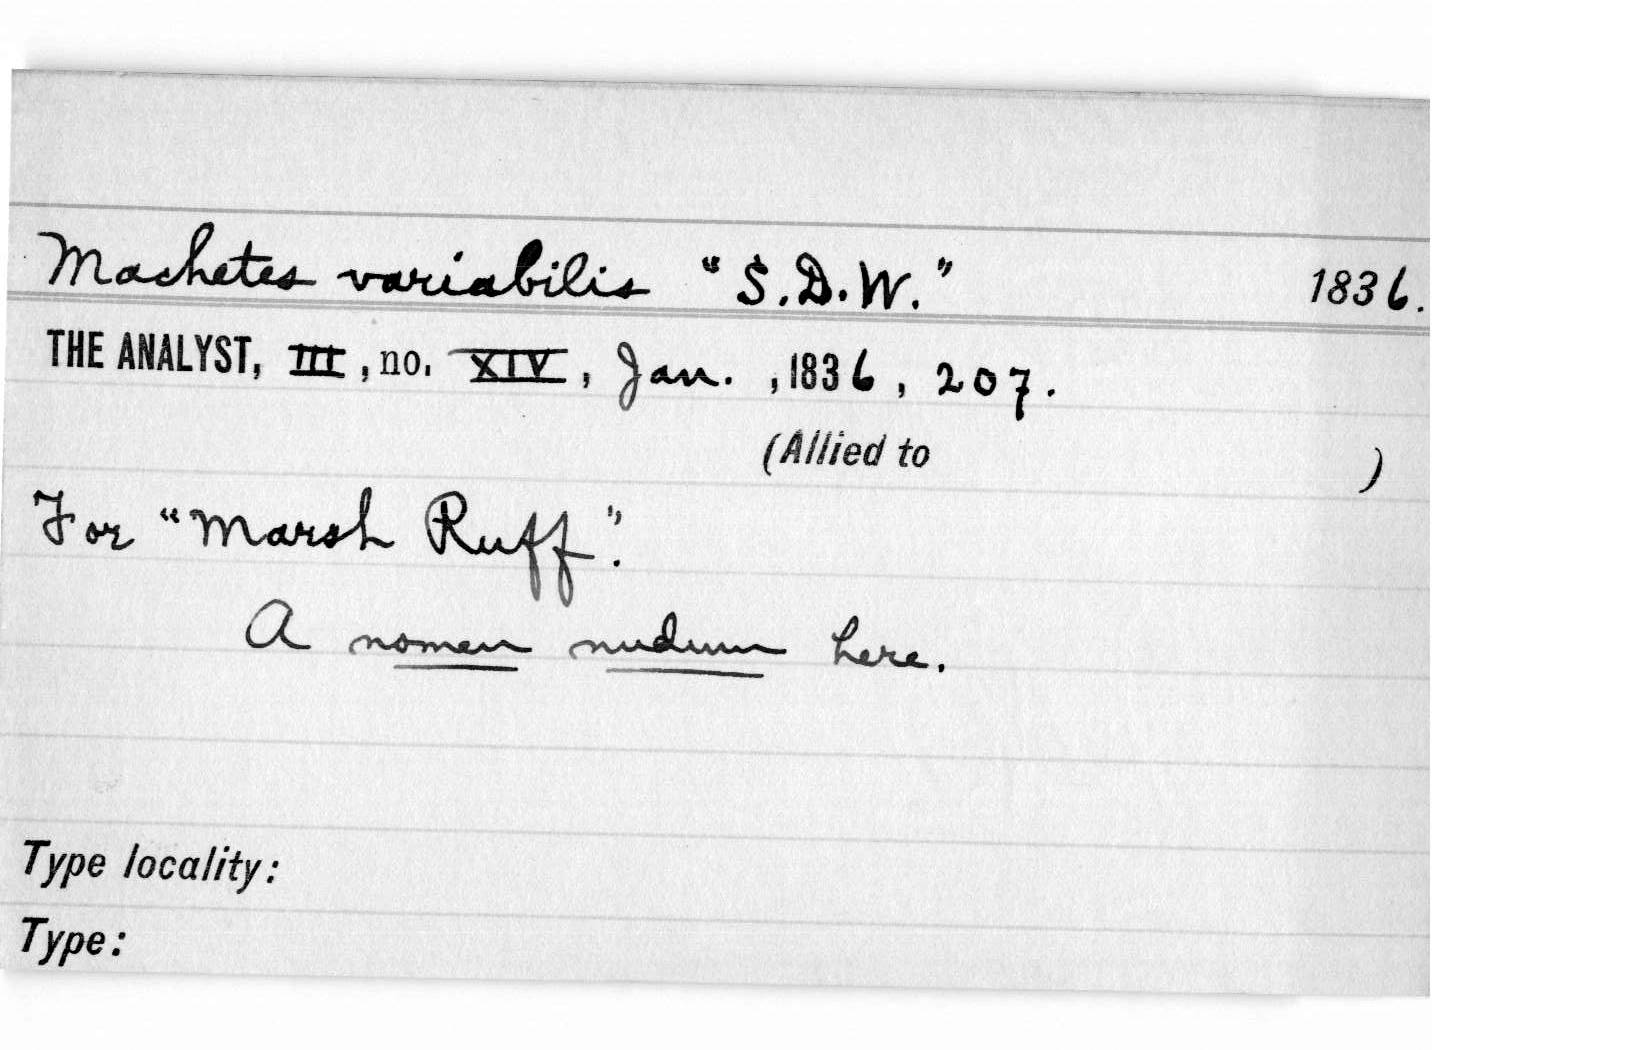 Machetes variabilis "S.D.W." 1836.
THE ANALYST, III, no. XIV, Jan. ,1836, 207.
(Allied to )
For "Marsh Ruff".
A nomen nudum here.
Type locality:
Type: